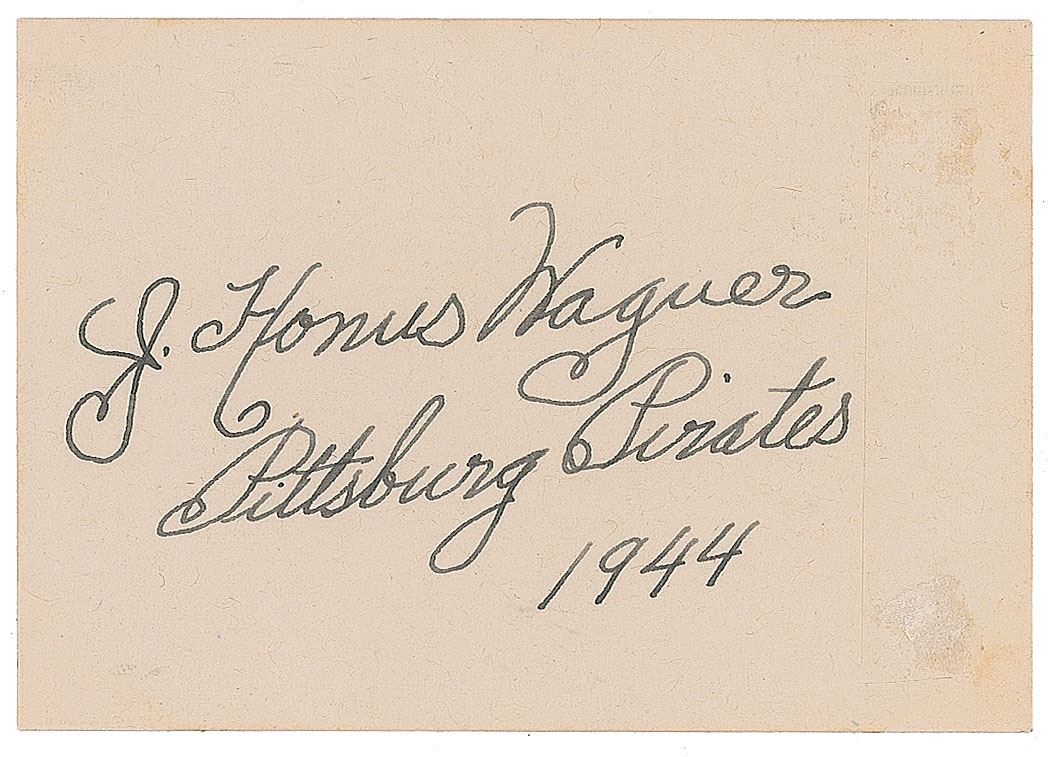 J. Honus Wagner
Pittsburg Pirates
1944